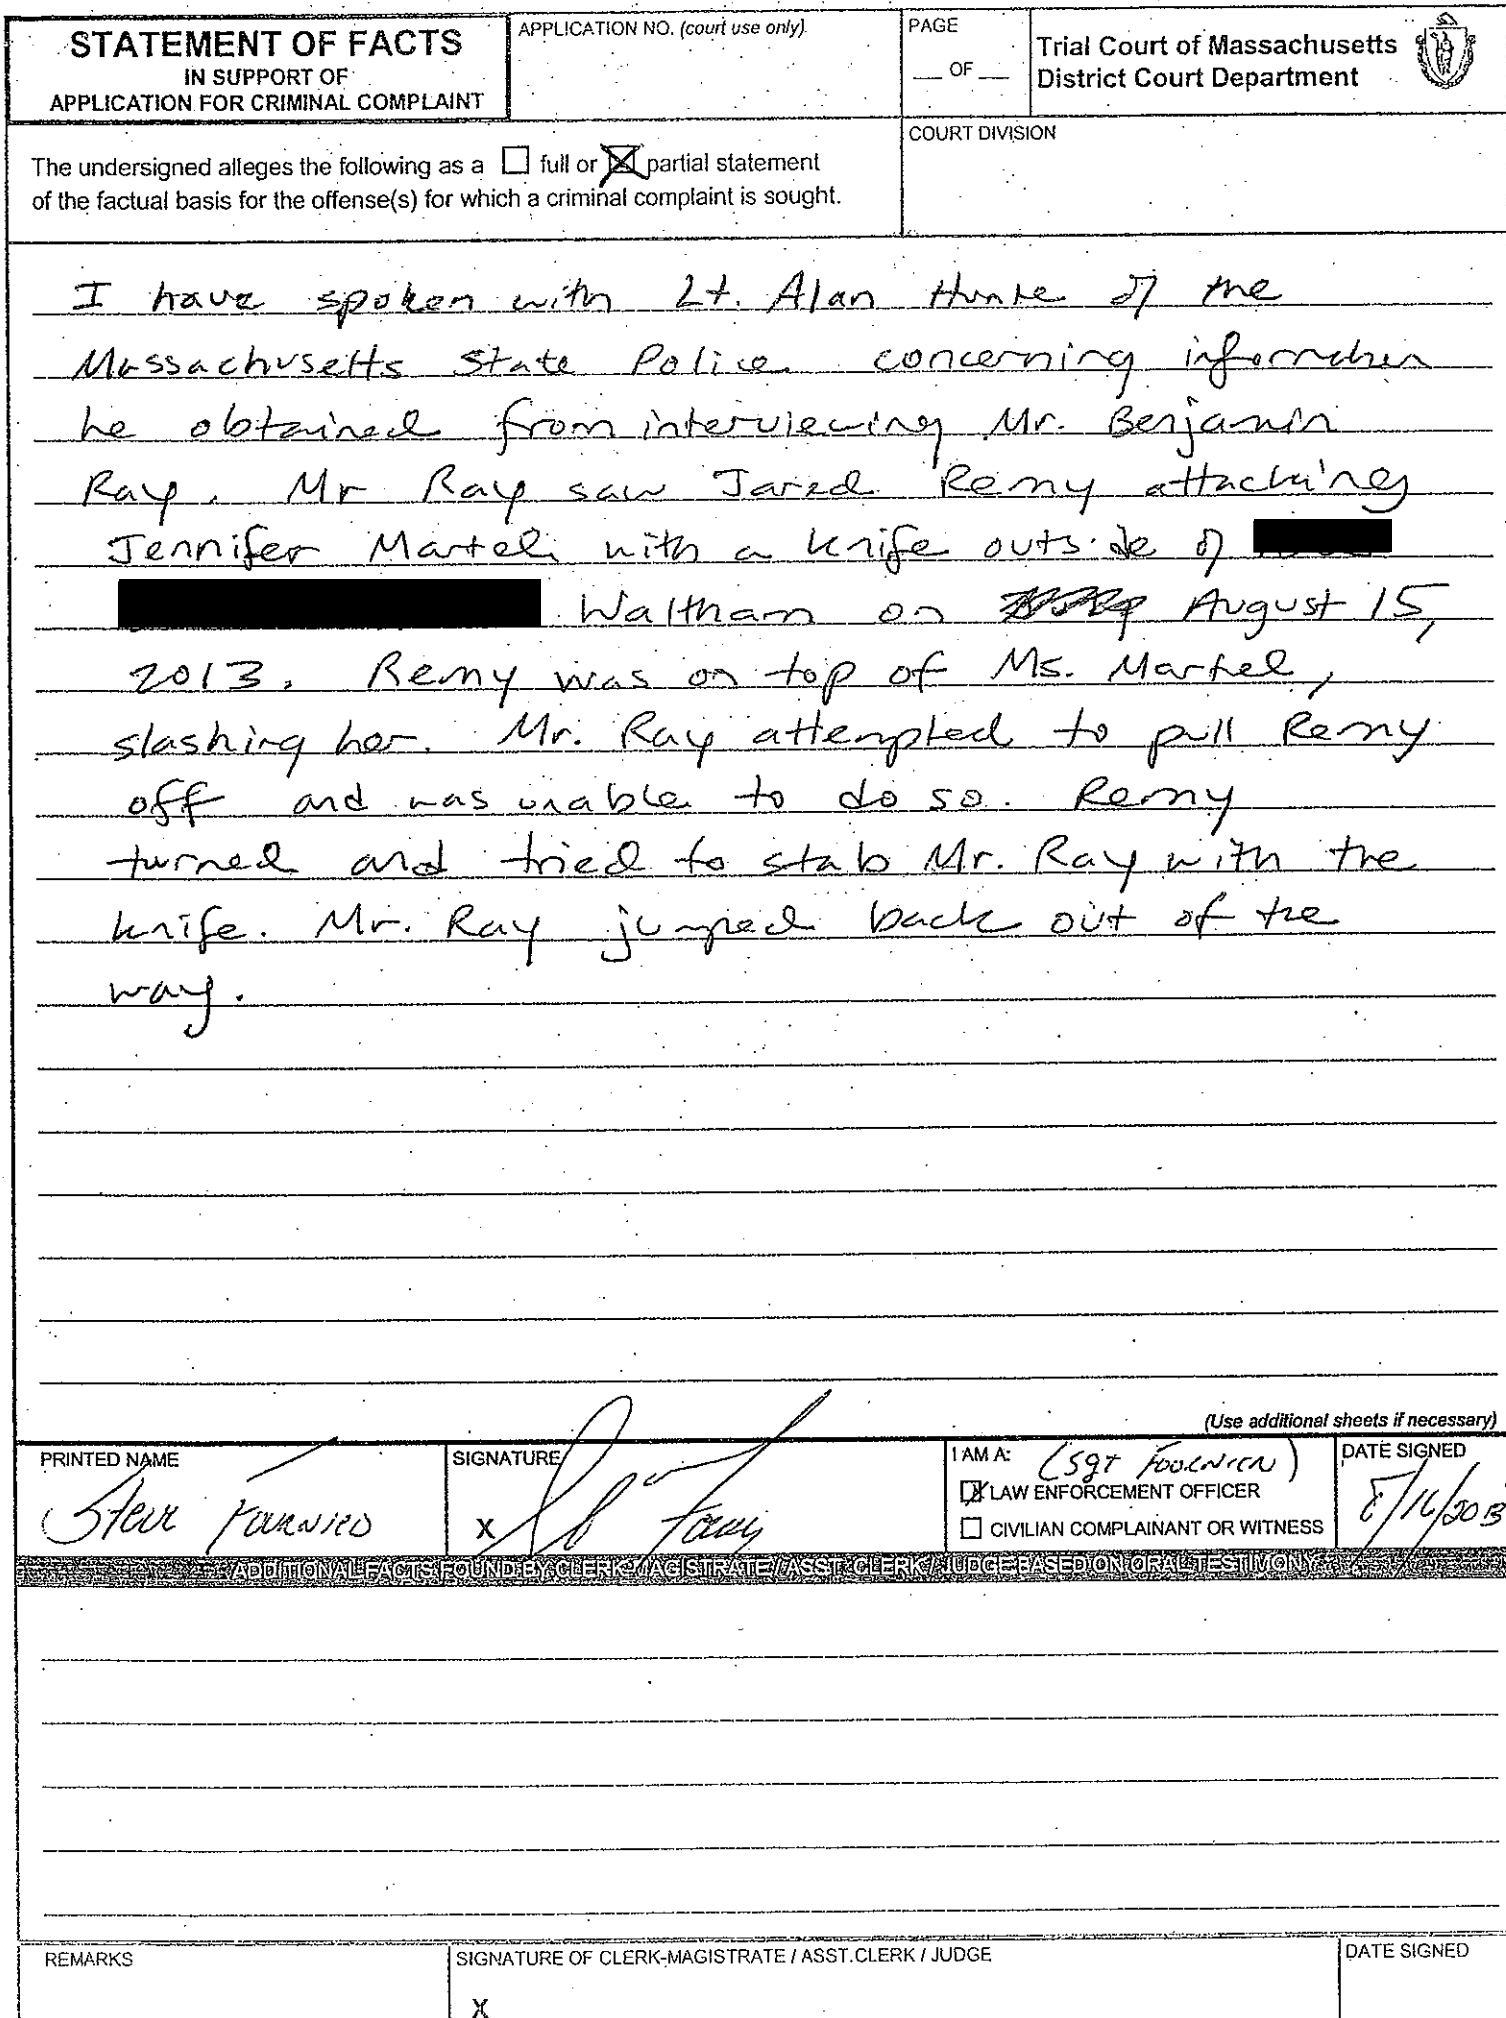 STATEMENT OF FACTS
IN SUPPORT OF
APPLICATION FOR CRIMINAL COMPLAINT
APPLICATION NO. (court use only)
PAGE
__ OF __
Trial Court of Massachusetts
District Court Department
The undersigned alleges the following as a ☐ full or ☒ partial statement
of the factual basis for the offense(s) for which a criminal complaint is sought.
COURT DIVISION
I have spoken with Lt. Alan Hunte of the
Massachusetts State Police concerning information
he obtained from interviewing Mr. Benjamin
Ray. Mr Ray saw Jared Remy attacking
Jennifer Martel with a knife outside of
Waltham on August 15,
2013. Remy was on top of Ms. Martel,
slashing her. Mr. Ray attempted to pull Remy
off and was unable to do so. Remy
turned and tried to stab Mr. Ray with the
knife. Mr. Ray jumped back out of the
way.
(Use additional sheets if necessary)
PRINTED NAME
Steve Fournier
SIGNATURE
X
I AM A: (Sgt Fournier)
☒ LAW ENFORCEMENT OFFICER
☐ CIVILIAN COMPLAINANT OR WITNESS
DATE SIGNED
8/16/2013
ADDITIONAL FACTS FOUND BY CLERK-MAGISTRATE / ASST. CLERK / JUDGE BASED ON ORAL TESTIMONY
REMARKS
SIGNATURE OF CLERK-MAGISTRATE / ASST.CLERK / JUDGE
X
DATE SIGNED